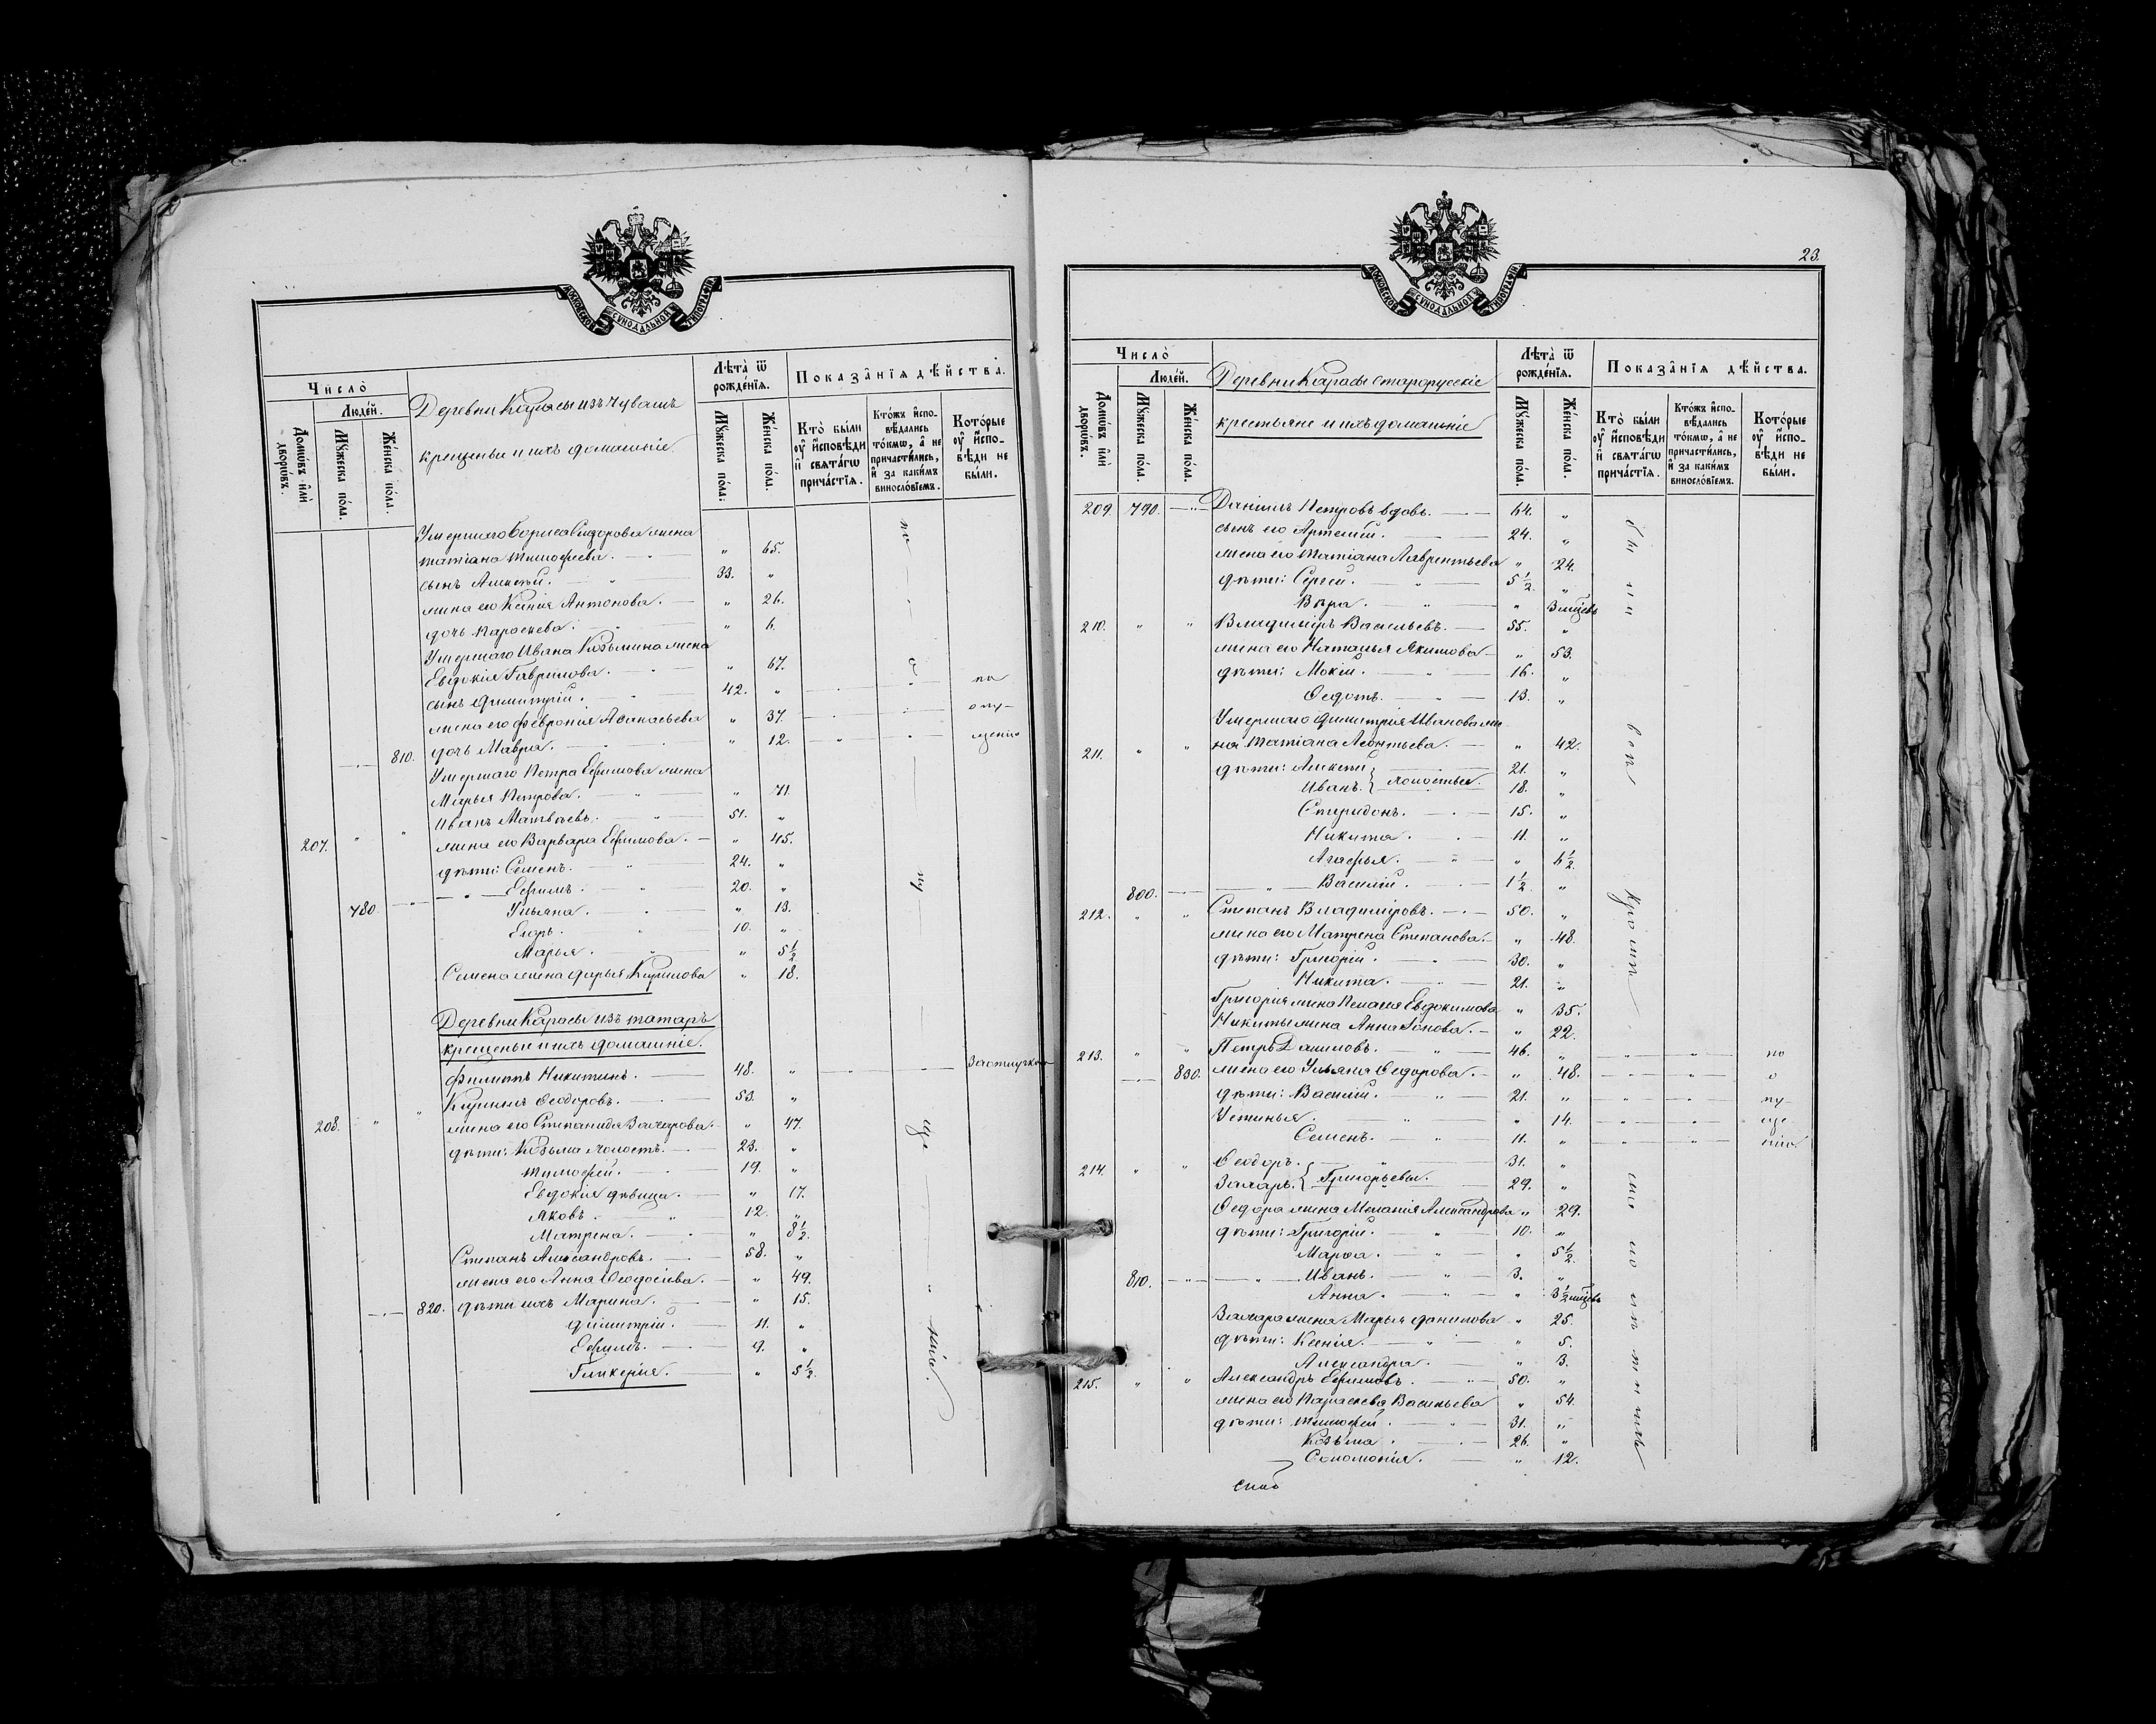 МОСКОВСКОЙ СѴНОДАЛЬНОЙ ТИПОГРАФІИ
Число̀
Людей.
Домѡвъ или дворѡвъ.
Мꙋжеска пола.
Женска пола.
Деревни Карасы изъ чувашъ
крещеные и ихъ домашніе.
Лѣта̀ ѿ рожденїѧ.
Мꙋжеска пола.
Женска пола.
Показанїѧ дѣйства.
Кто̀ были оу҆ исповѣди и свѧтагѡ причастїѧ.
Ктожъ исповѣдались токмѡ, а не причастились, и за какимъ винословїемъ.
Которые оу҆ исповѣди не были.
Умершаго Бориса Сидорова жена
Татіана Тимофеева. " 65.
сынъ Алексѣй. 33. "
жена его Ксенія Антонова. " 26.
дочь Параскева. " 6.
Умершаго Ивана Козьмина жена
Евдокія Гаврилова. " 67.
сынъ Димитрій. 42. "
жена его Феврония Аѳанасьева " 37.
810. дочь Мавра. " 12.
по опущенію
Умершаго Петра Ефимова жена
Марья Петрова. " 71.
207. " " Иванъ Матвѣевъ. 51. "
жена его Варвара Ефимова. " 45.
дѣти: Семенъ. 24. "
780. Ефимъ. 20. "
Ульяна. " 13.
Егоръ. 10. "
Марья. " 5½
Семена жена Дарья Кирилова " 18.
Деревни Карасы изъ татаръ
крещеные и ихъ домашніе.
Филиппъ Никитинъ. 48. " За отлучкою
208. " " Кириллъ Ѳеодоровъ. 53. "
жена его Степанида Захарова. " 47.
дѣти: Козьма холостъ. 23. "
Тимофей. 19. "
Евдокія дѣвица. " 17.
Яковъ. 12. "
Матрена. " 8½.
Степанъ Александровъ. 58. "
жена его Анна Ѳеодосіева. " 49.
820. дѣти ихъ Марина. " 15.
Димитрій. 11. "
Ефимъ. 9. "
Гликерія. " 5½
по опущенію.
23.
МОСКОВСКОЙ СѴНОДАЛЬНОЙ ТИПОГРАФІИ
Число̀
Людей.
Домѡвъ или дворѡвъ.
Мꙋжеска пола.
Женска пола.
Деревни Карасы старорусскіе
крестьяне и ихъ домашніе
Лѣта̀ ѿ рожденїѧ.
Мꙋжеска пола.
Женска пола.
Показанїѧ дѣйства.
Кто̀ были оу҆ исповѣди и свѧтагѡ причастїѧ.
Ктожъ исповѣдались токмѡ, а не причастились, и за какимъ винословїемъ.
Которые оу҆ исповѣди не были.
209. 790. Даніилъ Петровъ вдовъ. 64. "
сынъ его Артемій. 24. "
жена его Татіана Лаврентьева " 24.
дѣти: Сергей. 5½ "
Вѣра. " 3 мѣсев
210. " " Владиміръ Васильевъ. 55. "
жена его Наталья Якимова " 53.
дѣти: Мокій. 16. "
Ѳедотъ. 13. "
Умершаго Димитрія Иванова же-
211. " " на Татіана Леонтьева. " 42.
дѣти: Алексѣй 21. "
Иванъ. } холостые. 18. "
Спиридонъ. 15. "
Никита. 11. "
Агафья. " 6½
800. Василій. 1½ "
212. " " Степанъ Владиміровъ. 50. "
жена его Матрена Степанова. " 48.
дѣти: Григорій. 30. "
Никита. 21. "
Григорія жена Пелагея Евдокимова " 35.
Никиты жена Анна " 22.
213. " " Петръ Даниловъ. 46. "
830. жена его Ульяна Ѳедорова. " 48.
дѣти: Василій. 21. "
Устинья. " 14.
Семенъ. 11. "
по опущенію
214. " " Ѳеодоръ. 31. "
Захаръ. } Григорьевы. 29. "
Ѳедора жена Меланія Александрова " 29.
дѣти: Григорій. 10. "
Марѳа. " 5½.
810. Иванъ. 3. "
Анна. " 3½ мѣсев
Захара жена Марья Данилова " 25.
дѣти: Ксенія. " 5.
Александра. " 3.
215. " " Александръ Ефимовъ. 50. "
жена его Параскева Васильева " 54.
дѣти: Тимофей. 31. "
Козьма. 26. "
Соломонія. " 12.
были
всѣ
кромѣ